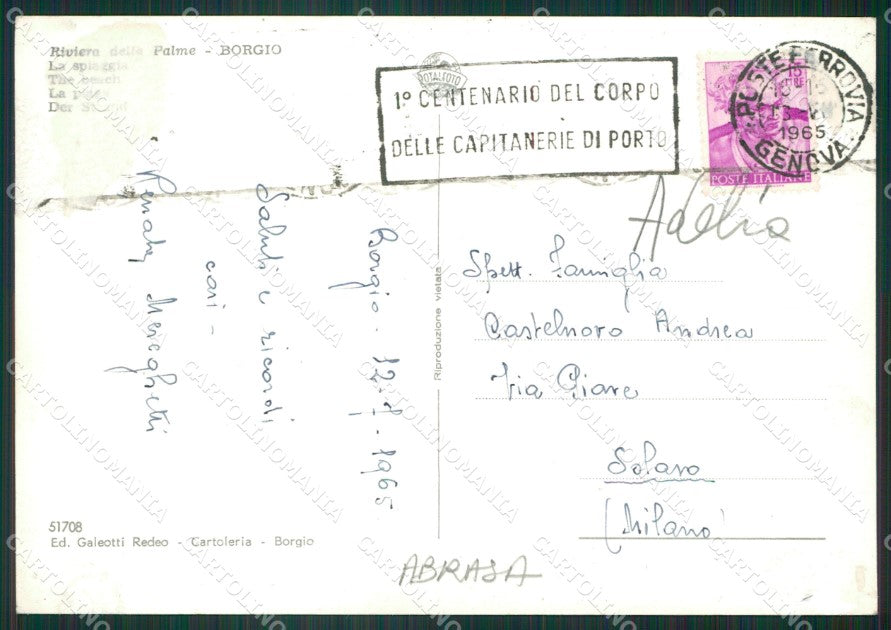 Riviera delle Palme - BORGIO
La spiaggia
The beach
La
Der
TOTALFOTO
1º CENTENARIO DEL CORPO
DELLE CAPITANERIE DI PORTO
POSTE FERROVIA
1965
GENOVA
15
POSTE ITALIANE
Adelio
Borgio - 12-7-1965
Saluti e ricordi
cari -
Renata Meneghetti
Riproduzione vietata
Spett. Famiglia
Castelnovo Andrea
Via Piave
Solaro
(Milano)
51708
Ed. Galeotti Redeo - Cartoleria - Borgio
ABRASA
CARTOLINOMANIA